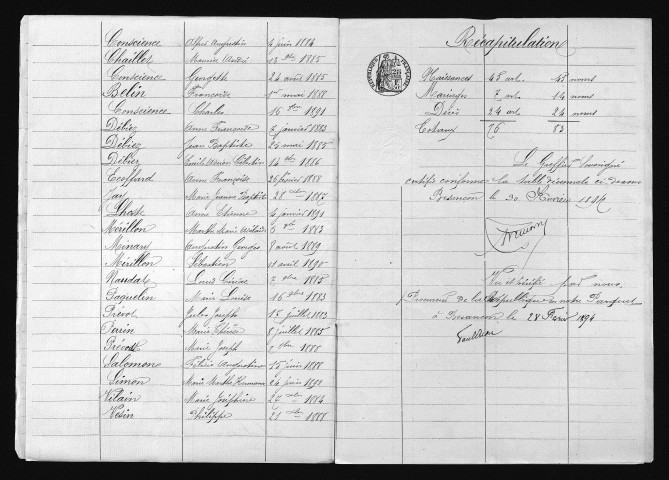 Conscience Alfred Augustin 4 juin 1884
Chaillet Maurice André 13 1885
Conscience Georgette 24 août 1885
Belin Françoise 1er mai 1888
Conscience Charles 15 1891
Débiez Anne Françoise 7 janvier 1883
Débiez Jean Baptiste 25 mai 1885
Débiez Emile 14 1886
Ecoffard Anne Françoise 26 février 1888
Jay Marie Jeanne 28 1887
Lhoste Anne Etienne 4 janvier 1891
Mérillon Marthe Marie 6 1883
Minary Augustin Georges 8 août 1889
Mérillon Sébastien 11 avril 1890
Naudat Louis 7 1885
Paquelin Marie Louise 16 1883
Prévot Jules Joseph 17 juillet 1883
Parin Marie 8 juillet 1885
Prévost Marie Joseph 1888
Salomon Félicie Augustine 15 juin 1888
Simon Marie Marthe 24 juin 1890
Vilain Marie Joséphine 27 1884
Vesin Philippe 21 1888
Récapitulation
Naissances 45 act. 45 noms
Mariages 7 act. 14 noms
Décès 24 act. 24 noms
Totaux 76 83
Le Greffier soussigné
certifie conforme la table décennale ci dessus
Besançon le 30 1894
Vu et vérifié par nous
Procureur de la République notre Parquet
à Besançon le 28 1894